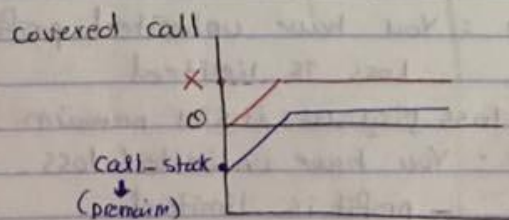 covered call
X
0
Call-stock
↓
(premaim)